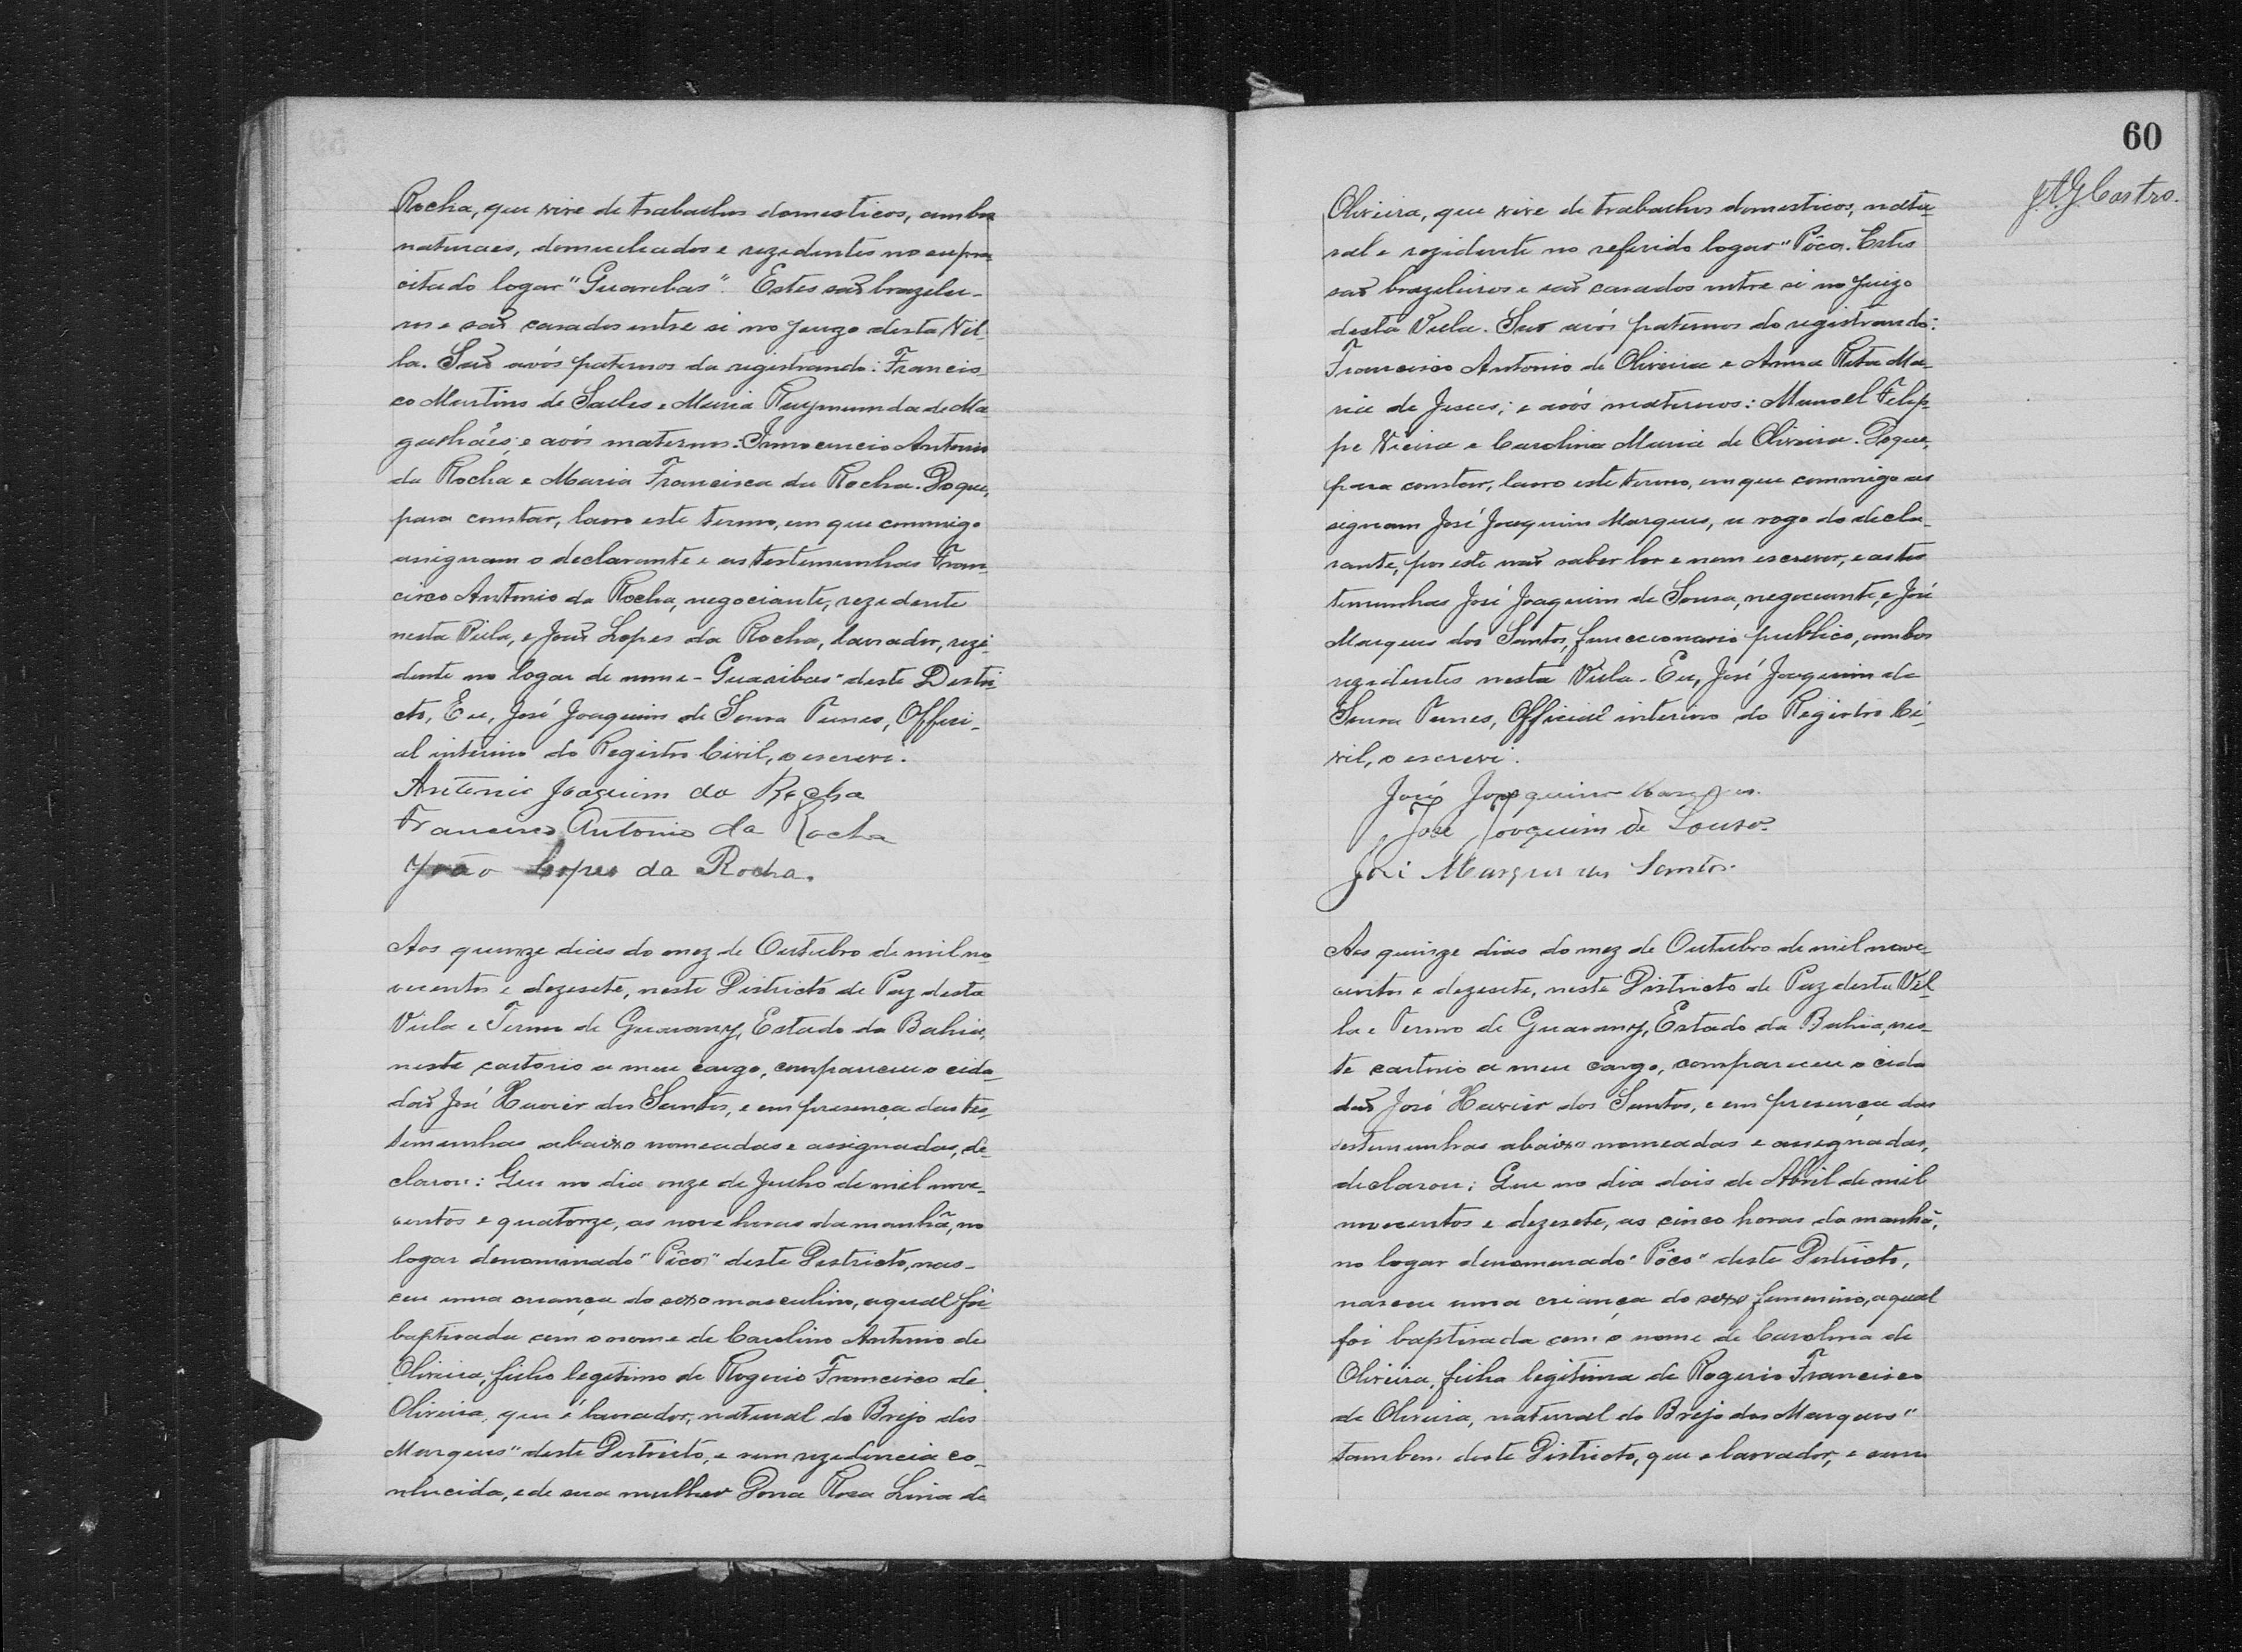 Rocha, que vive de trabalhos domesticos, ambos
naturaes, domiciliados e rezidentes no supra
citado logar "Guaribas". Estes são brazilei-
ros e são casados entre si no Juizo desta Vil-
la. São avós paternos da registrando: Francis
co Martins de Salles e Maria Raymunda de Ma
galhães; e avós maternos: Innocencio Antonio
da Rocha e Maria Francisca da Rocha. Do que,
para constar, lavro este termo, em que commigo
assignam o declarante e as testemunhas Fran-
cisco Antonio da Rocha, negociante, rezidente
nesta Villa, e João Lopes da Rocha, lavrador, rezi-
dente no logar de nome - Guaribas" deste Distri
cto, Eu, José Joaquim de Sousa Tunes, Offici-
al interino do Registro Civil, o escrevi.
Antonio Joaquim da Rocha
Francisco Antonio da Rocha
João Lopes da Rocha.
Aos quinze dias do mez de Outubro de mil no-
vecentos e dezesete, neste Districto de Paz desta
Villa e Termo de Guarany, Estado da Bahia,
neste cartorio a meu cargo, compareceu o cida-
dão José Xavier dos Santos, e em presença das tes-
temunhas abaixo nomeadas e assignadas, de-
clarou: Que no dia onze de Junho de mil nove-
centos e quatorze, as nove horas da manhã, no
logar denominado "Pôço" deste Districto, nas-
ceu uma criança do sexo masculino, a qual foi
baptisada com o nome de Carolino Antonio de
Oliveira, filho legitimo de Rogerio Francisco de
Oliveira, que é lavrador, natural do Brejo dos
Marques" deste Districto, e sem rezidencia co-
nhecida, e de sua mulher Dona Rosa Liria de
60
J.A.G. Castro.
Oliveira, que vive de trabalhos domesticos, natu-
ral e rezidente no referido logar "Pôço. Estes
são brazileiros e são casados entre si no Juizo
desta Villa. São avós paternos do registrando:
Francisco Antonio de Oliveira e Anna Rita Ma-
ria de Jesus; e avós maternos: Manoel Felip-
pe Vieira e Carolina Maria de Oliveira. Do que,
para constar, lavro este termo, em que commigo as
signam José Joaquim Marques, a rogo do decla-
rante, por este não saber ler e nem escrever, e as tes
temunhas José Joaquim de Sousa, negociante, e José
Marques dos Santos, funccionario publico, ambos
rezidentes nesta Villa. Eu, José Joaquim de
Sousa Tunes, Official interino do Registro Ci-
vil, o escrevi.
José Joaquim Marques.
José Joaquim de Souza.
José Marques dos Santos.
Aos quinze dias do mez de Outubro de mil nove-
centos e dezesete, neste Districto de Paz desta Vil-
la e Termo de Guarany, Estado da Bahia, nes-
te cartorio a meu cargo, compareceu o cida
dão José Xavier dos Santos, e em presença das
testemunhas abaixo nomeadas e assignadas,
declarou: Que no dia dois de Abril de mil
novecentos e dezesete, as cinco horas da manhã,
no logar denominado "Pôço" deste Districto,
nasceu uma criança do sexo femenino, a qual
foi baptisada com o nome de Carolina de
Oliveira, filha legitima de Rogerio Francisco
de Oliveira, natural do Brejo dos Marques"
tambem deste Districto, que e lavrador, e sem